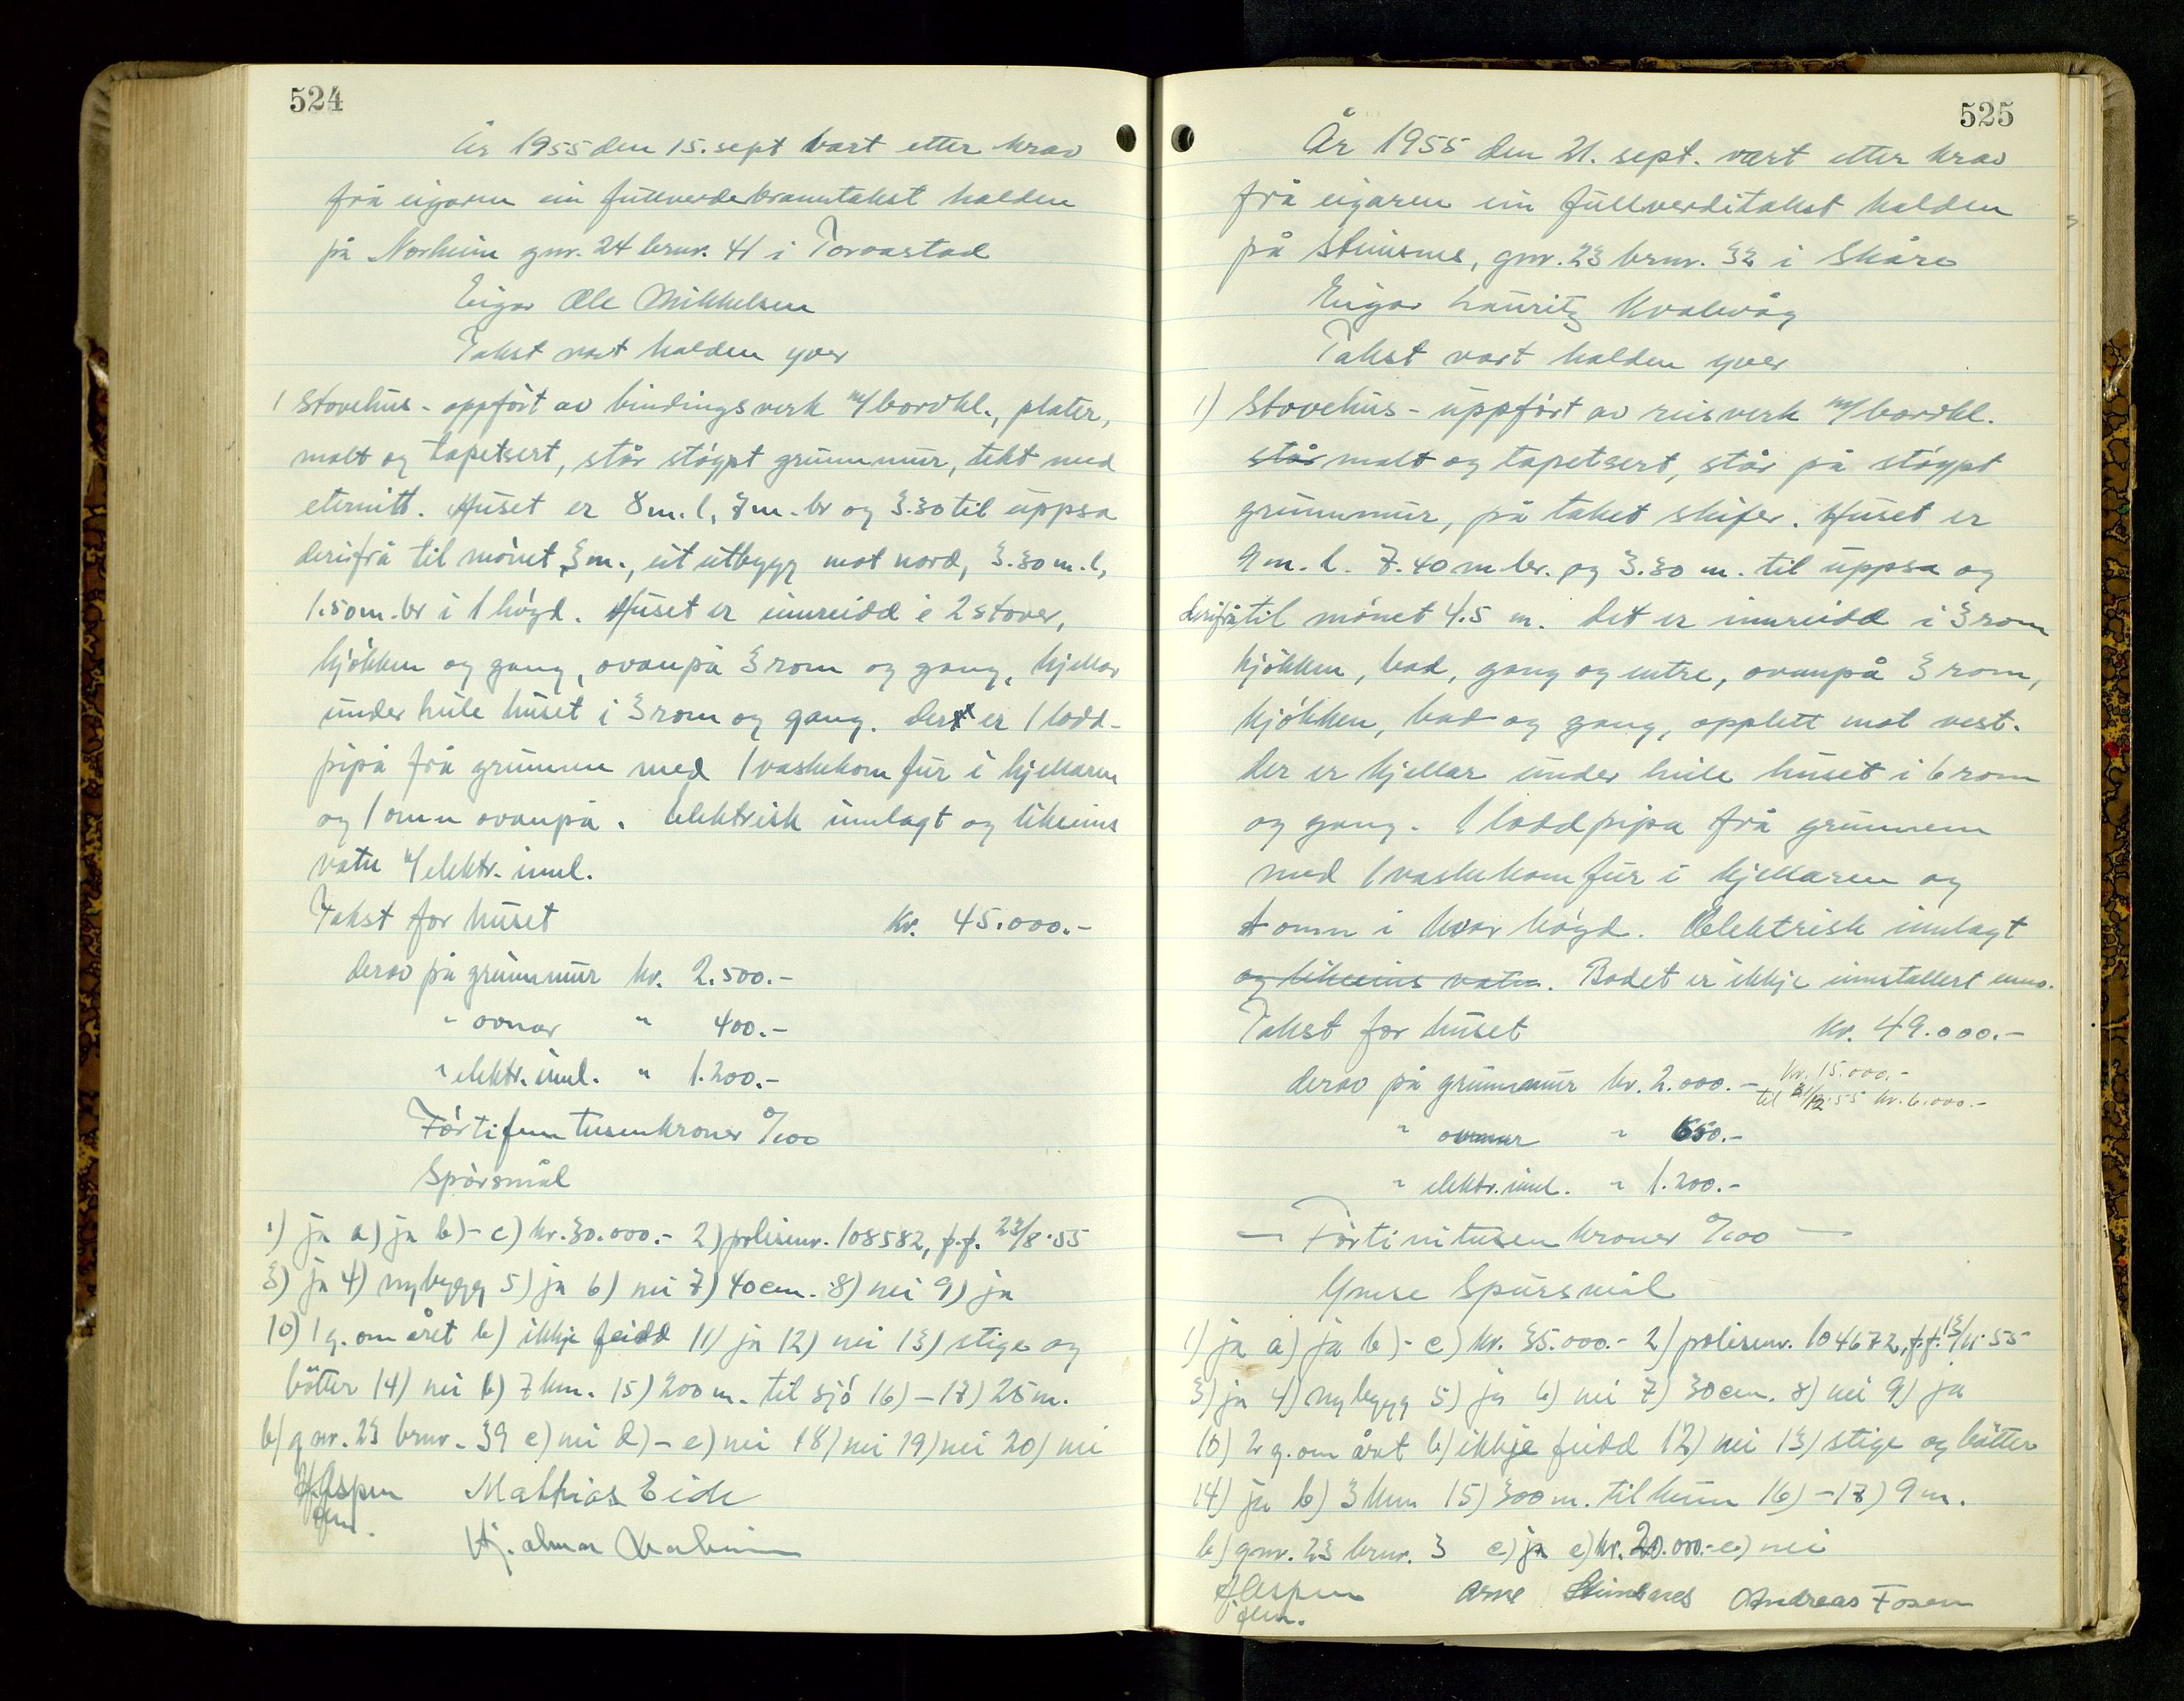 524
År 1955 den 15. sept vart etter krav
frå eigaren ein fullverdebranntakst halden
på Norheim gnr. 24 brnr. 41 i Torvastad
Eigar Ole Mikkelsen
Takst vart halden yver
1 Stovehus - oppført av bindingsverk m/bordkl., plater,
malt og tapetsert, står støypt grunnmur, tekt med
eternitt. Huset er 8 m. l, 7 m. br og 3.30 til uppsa
derifrå til mønet 3 m., eit utbygg mot nord, 3.30 m. l,
1.50 m. br i 1 høgd. Huset er innreidd i 2 stover,
kjøkken og gang, ovanpå 3 rom og gang, kjellar
under heile huset i 3 rom og gang. Der er 1 lodd-
pipa frå grunnen med 1 vaskekomfur i kjellaren
og 1 omn ovanpå. Elektrisk innlagt og likeeins
vatn m/elektr. innl.
Takst for huset kr. 45.000.-
derav på grunnmur kr. 2.500.-
" ovnar " 400.-
" elektr. innl. " 1.200.-
Førtifem tusen kroner 0/100
Spørsmål
1) ja a) ja b) - c) kr. 30.000.- 2) polisenr. 108582, f.f. 23/8.55
3) ja 4) nybygg 5) ja 6) nei 7) 40 cm. 8) nei 9) ja
10) 1 g. om året b) ikkje feidd 11) ja 12) nei 13) stige og
bøtter 14) nei b) 7 km. 15) 200 m. til sjø 16) - 17) 25 m.
b) gnr. 23 brnr. 39 c) nei d) - e) nei 18) nei 19) nei 20) nei
H. Aspen Mathias Eide
Hjalmar
525
År 1955 den 21. sept. vart etter krav
frå eigaren ein fullverditakst halden
på Steinsnes, gnr. 23 brnr. 32 i Skåre
Eigar Lauritz Kvalevåg
Takst vart halden yver
1) Stovehus - uppført av reisverk m/bordkl.
står malt og tapetsert, står på støypt
grunnmur, på taket skifer. Huset er
9 m. l. 7.40 m. br. og 3.30 m. til uppsa og
derifrå til mønet 4.5 m. Det er innreidd i 3 rom
kjøkken, bad, gang og entre, ovanpå 3 rom,
kjøkken, bad og gang, opplett mot vest.
Der er kjellar under heile huset i 6 rom
og gang. 1 loddpipa frå grunnen
med 1 vaskekomfur i kjellaren og
1 omn i kvar høgd. Elektrisk innlagt
og likeeins vatn. Badet er ikkje innstallert enno.
Takst for huset kr. 49.000.-
derav på grunnmur kr. 2.000.- kr. 15.000.-
til 31/12.55 kr. 6.000.-
" ovnar " 650.-
" elektr. innl. " 1.200.-
- Førtinitusen kroner 0/100 -
Ymse Spursmål
1) ja a) ja b) - c) kr. 35.000.- 2) polisenr. 104672, f.f. 13/11.55
3) ja 4) nybygg 5) ja 6) nei 7) 30 cm. 8) nei 9) ja
10) 2 g. om året b) ikkje feidd 12) nei 13) stige og bøtter
14) ja b) 3 km 15) 300 m. til kum 16) - 17) 9 m.
b) gnr. 23 brnr. 3 c) ja c) kr. 20.000.- e) nei
H. Aspen Arne Steinsnes Andreas Fosen